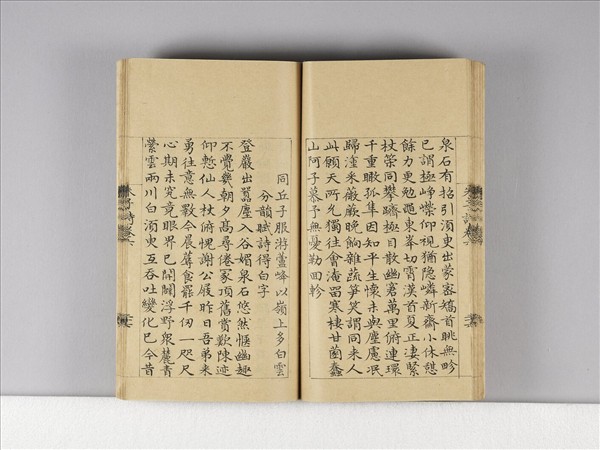 泉石有招引湏臾出蒙密矯首眺無畛
已謂極崢嶸仰視猶隱嶙新齋小休憩
餘力更勉黽東峯切霄漢首夏正凄緊
杖筞同攀躋極目散幽窘萬里俯連環
千重瞰孤隼因知平生懷未與塵慮泯
歸塗采薇蕨晚餉雜蔬笋笑謂同来人
此願天所允獨往會淹留寒棲甘菌蠢
山阿子慕予無憂勒回軫
同丘子服游蘆峰以嶺上多白雲
分韻賦詩得白字
登巖出囂塵入谷媚泉石悠然愜幽趣
不覺幾朝夕高尋倦冢頂舊賞歎陳迹
仰慙仙人杖俯愧謝公屐昨日吾弟来
勇往意無斁今晨蓐食罷千仞一咫尺
心期未究竟眼界已開闢浮野衆麓青
縈雲兩川白湏臾互吞吐變化已今昔